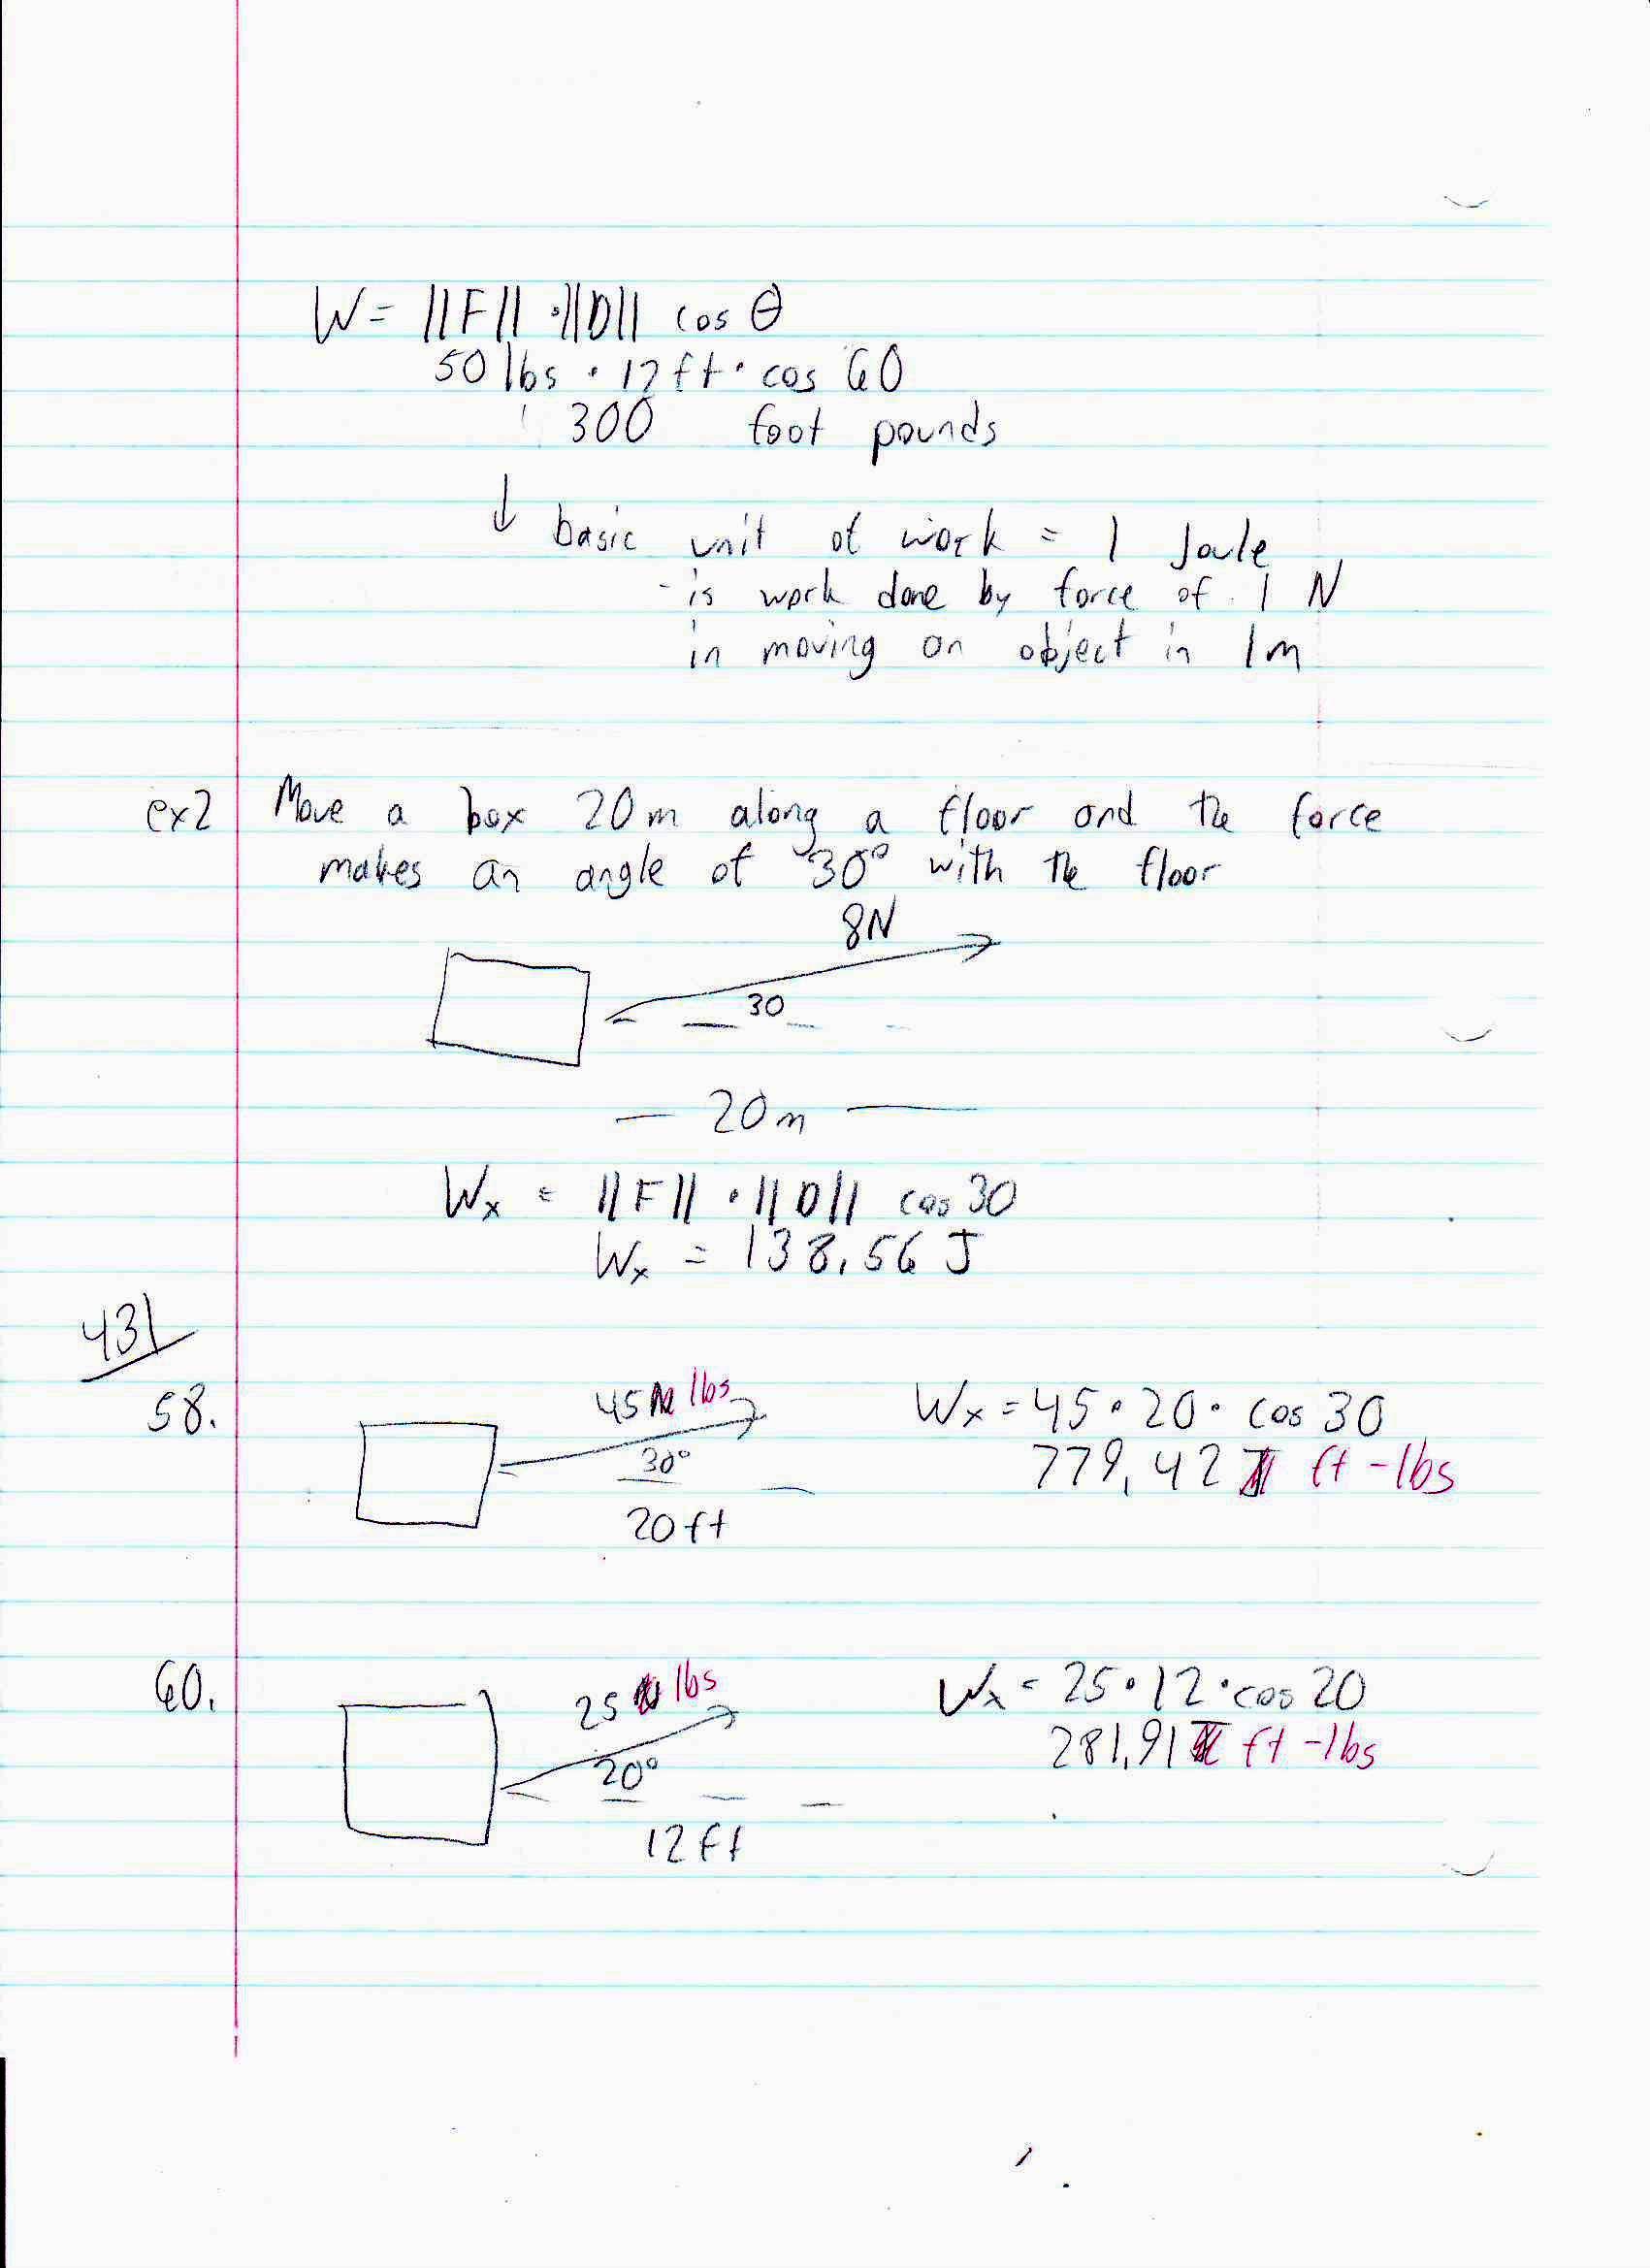 W = ||F|| · ||D|| cos θ
50 lbs · 12 ft · cos 60
300 foot pounds
↓ basic unit of work = 1 Joule
- is work done by force of 1 N
in moving an object in 1m
ex2 Move a box 20m along a floor and the force
makes an angle of 30° with the floor
8N
30
20m
Wx = ||F|| · ||D|| cos 30
Wx = 138.56 J
431
58. 45 lbs Wx = 45 · 20 · cos 30
30° 779.42 ft-lbs
20ft
60. 25 lbs Wx = 25 · 12 · cos 20
20° 281.91 ft-lbs
12ft